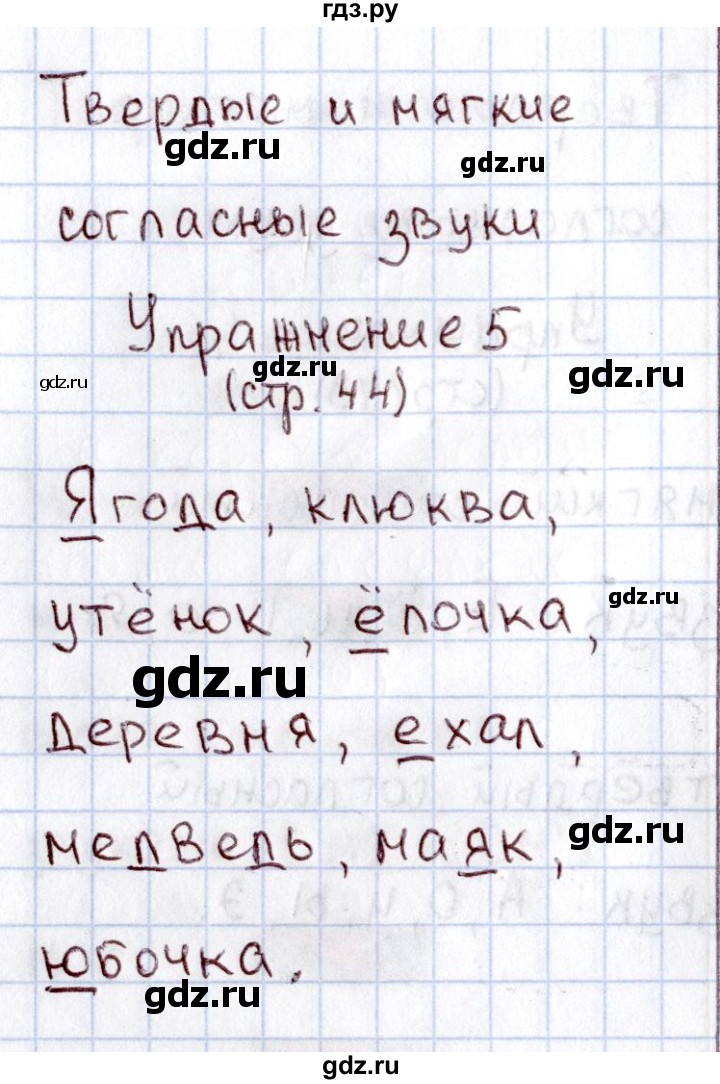 гдз.ру
Твердые и мягкие
gdz.ru
gdz.ru
согласные звуки
Упражнение 5
gdz.ru
gdz.ru
gdz.ru
(стр. 44)
Ягода, клюква,
gdz.ru
утёнок, ёлочка,
gdz.ru
деревня, ехал,
gdz.ru
медведь, маяк,
юбочка.
gdz.ru
gdz.ru